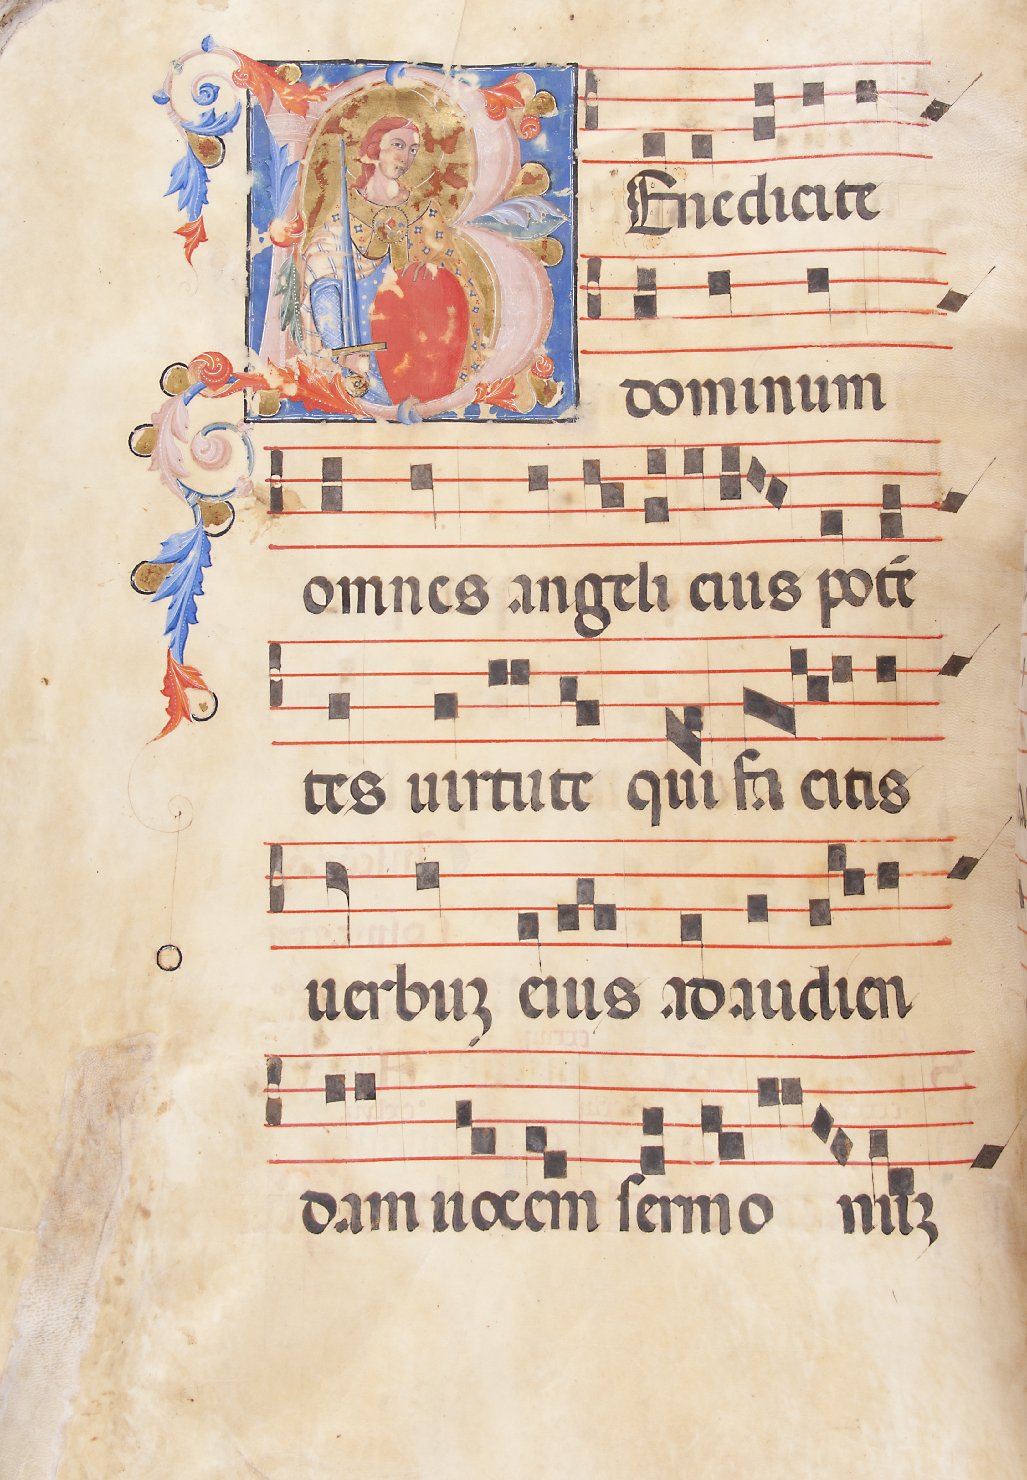 BEnedicite
dominum
omnes angeli eius potē
tes uirtute qui fa citis
uerbuꝫ eius ad audien
dam uocem sermo nuꝫ